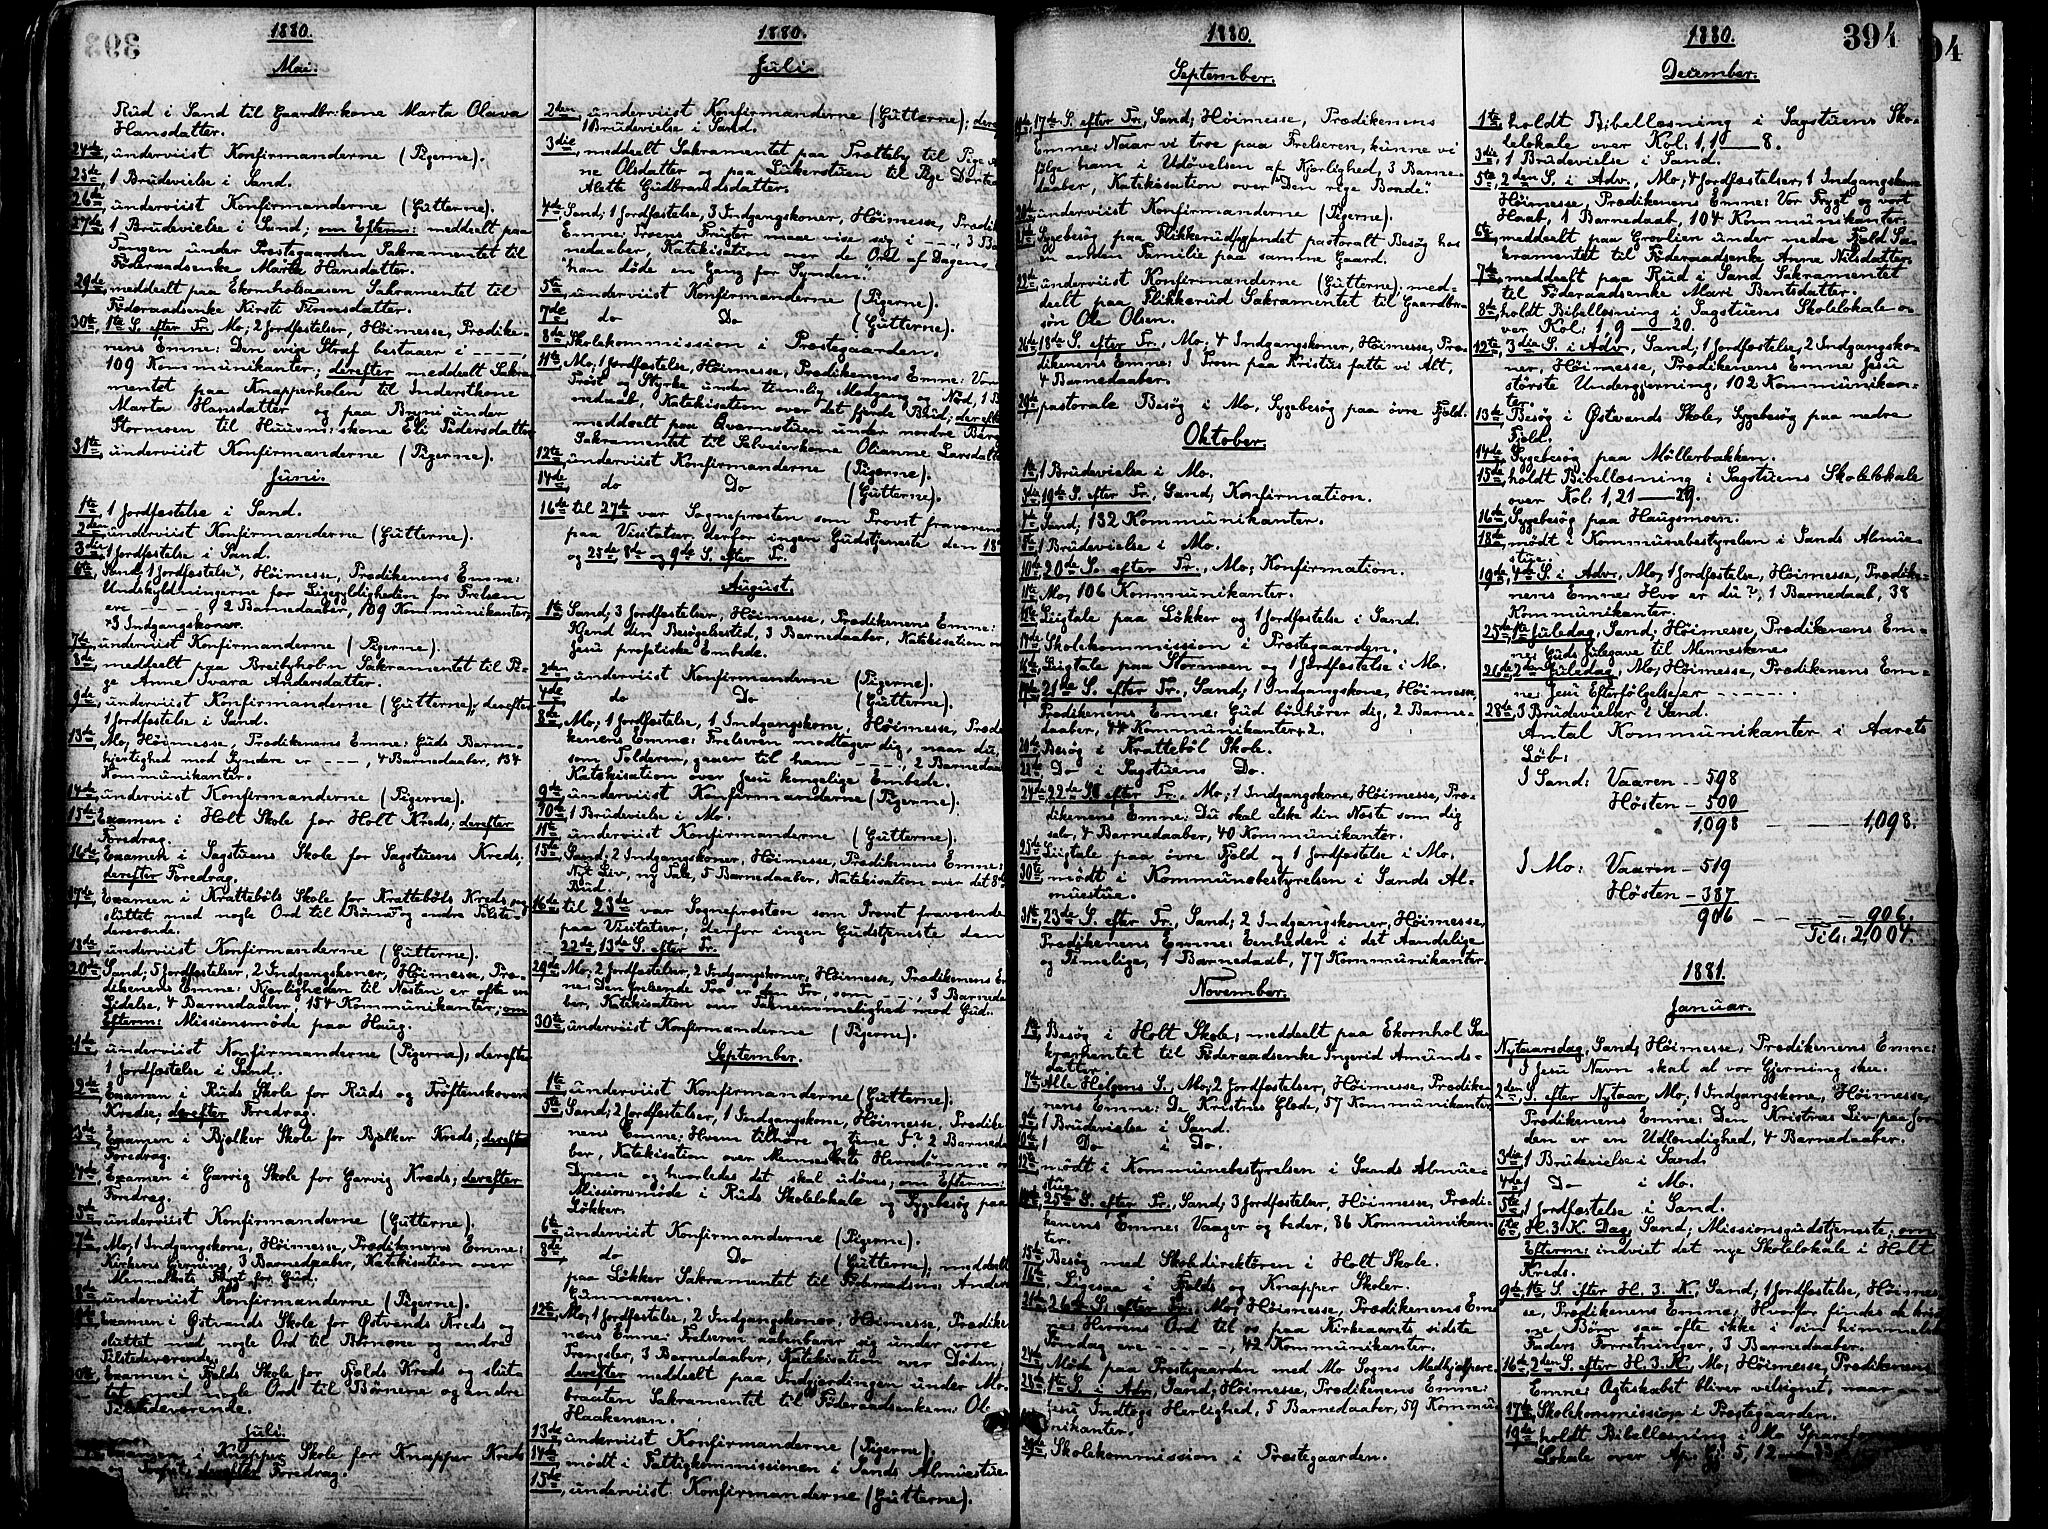 393
1880.
Mai.
Rud i Sand til Gaardbr:kone Marta Olava
Hansdatter.
24de, underviist Konfirmanderne (Pigerne).
25de, 1 Brudevielse i Sand.
26de, underviist Konfirmanderne (Gutterne).
27de, 1 Brudevielse i Sand; om Efterm: meddeelt paa
Tangen under Præstegaarden Sakramentet til
Føderaadsenke Marte Hansdatter.
29de, meddeelt paa Ekornholsaasen Sakramentet til
Føderaadsenke Kirsti Finnsdatter.
30te, 1te S. efter Tr., Mo; 2 Jordfæstelser, Høimesse, Prædike-
nens Emne: Den evige Straf bestaaer i ----,
109 Kommunikanter; derefter meddeelt Sakra-
mentet paa Knapperholen til Inderstkone
Marta Hansdatter og paa Bruni under
Stormoen til Huusm:skone Eli Pedersdatter.
31te, underviist Konfirmanderne (Pigerne).
Juni.
1te, 1 Jordfæstelse i Sand.
2den, underviist Konfirmanderne (Gutterne).
3die, 1 Jordfæstelse i Sand.
6te, Sand, 1 Jordfæstelse, Høimesse, Prædikenens Emne:
Undskyldningerne for Ligegyldigheden for Frelsen
ere ----, 2 Barnedaaber, 109 Kommunikanter,
3 Indgangskoner.
7de, underviist Konfirmanderne (Pigerne).
8de, meddeelt paa Breibyhol'n Sakramentet til Pi-
ge Anne Svara Andersdatter.
9de, underviist Konfirmanderne (Gutterne), derefter
1 Jordfæstelse i Sand.
13de, Mo, Høimesse, Prædikenens Emne: Guds Barm-
hjertighed mod Syndere er ---, 4 Barnedaaber, 134
Kommunikanter.
14de, underviist Konfirmanderne (Pigerne).
15de, Examen i Holt Skole for Holt Kreds; derefter
Foredrag.
16de, Examen i Sagstuens Skole for Sagstuens Kreds;
derefter Foredrag.
17de, Examen i Kratteböls Skole for Kratteböls Kreds og
sluttet med nogle Ord til Børnene og andre Tilste-
deværende.
18de, underviist Konfirmanderne (Gutterne).
20de, Sand; 5 Jordfæstelser, 2 Indgangskoner, Høimesse, Præ-
dikenens Emne: Kjærligheden til Næsten er ofte en
Lidelse, 4 Barnedaaber, 154 Kommunikanter; om
Efterm: Missionsmøde paa Haug.
21de, underviist Konfirmanderne (Pigerne), derefter
1 Jordfæstelse i Sand.
22de, Examen i Ruds Skole for Ruds og Tröftenskoven
Kredse; derefter Foredrag.
23de, Examen i Bjølker Skole for Bjølker Kreds; derefter
Foredrag.
24de, Examen i Garvig Skole for Garvig Kreds; derefter
Foredrag.
25de, underviist Konfirmanderne (Gutterne).
27de, Mo, 1 Indgangskone, Høimesse, Prædikenens Emne:
Kirkens Gjerning, 3 Barnedaaber, Katekisation over
Menneskets Frygt for Gud.
28de, underviist Konfirmanderne (Pigerne).
Examen i Østvands Skole for Østvands Kreds og
sluttet med nogle Ord til Børnene og andre
Tilstedeværende.
30te, Examen i Fjölds Skole for Fjölds Kreds og slut-
tet med nogle Ord til Børnene og andre
Tilstedeværende.
Juli.
Examen i Knapper Skole for Knapper Kreds
derefter Foredrag.
1880.
Juli.
2den, underviist Konfirmanderne (Gutterne); deref
1 Brudevielse i Sand.
3die, meddeelt Sakramentet paa Trætteby til Pige
ne Olsdatter og paa Lukerstuen til Pige Dortea
Alette Gudbrandsdatter.
4de, Sand; 1 Jordfæstelse, 3 Indgangskoner, Høimesse, Prædike
Emne: Troens Frugter maae vise sig i ---, 3 Bar
nedaaber, Katekisation over de Ord af Dagens
"han døde en Gang for Synden".
5te, underviist Konfirmanderne (Pigerne).
7de, do Do (Gutterne).
8de, Skolekommission i Præstegaarden.
11te, Mo, 1 Jordfæstelse, Høimesse, Prædikenens Emne: Vor
Trøst og Styrke under timelig Modgang og Nød, 1 B
nedaab, Katekisation over det fjerde Bud; derefter
meddeelt paa Qvernstuen under nordre Berg
Sakramentet til Selveierkone Olianne Larsdatter
12te, underviist Konfirmanderne (Pigerne).
14de, do Do (Gutterne).
16de til 27de var Sognepræsten som Provst fraværende
paa Visitatser, derfor ingen Gudstjeneste den 18de
og 25de, 8de og 9de S. efter Tr.
August.
1te, Sand; 3 Jordfæstelser, Høimesse, Prædikenens Emne:
Kjend din Besøgelsestid, 3 Barnedaaber, Katekisation over
Jesu profetiske Embede.
2den, underviist Konfirmanderne (Pigerne).
4de, do Do (Gutterne).
8de, Mo; 1 Jordfæstelse, 1 Indgangskone, Høimesse, Prædi
kenens Emne: Frelseren modtager dig, naar du,
som Tolderen, gaaer til ham ----, 2 Barnedaab
Katekisation over Jesu kongelige Embede.
9de, underviist Konfirmanderne (Pigerne).
10de, 1 Brudevielse i Mo.
11te, underviist Konfirmanderne (Gutterne).
15de, Sand; 2 Indgangskoner, Høimesse, Prædikenens Emne:
Nyt Liv, ny Tale, 5 Barnedaaber, Katekisation over det 8de
Bud.
16de til 23de var Sognepræsten som Provst fraværende
paa Visitatser; derfor ingen Gudstjeneste den
22de, 13de S. efter Tr.
29de, Mo; 2 Jordfæstelser, 2 Indgangskoner, Høimesse, Prædikenens Em
ne: Den frelsende Tro er den Tro, som ---, 3 Barnedaa
ber, Katekisation over Taknemmelighed mod Gud.
30te, underviist Konfirmanderne (Pigerne).
September.
1te, underviist Konfirmanderne (Gutterne).
5te, Sand; 2 Jordfæstelser, 1 Indgangskone, Høimesse, Prædike
nens Emne: Hvem tilhøre og tjene I? 2 Barnedaa
ber, Katekisation over Menneskets Herredømme over
Dyrene og hvorledes det skal udøves; om Efterm:
Missionsmøde i Ruds Skolelokale og Sygebesøg paa
Løkker.
6te, underviist Konfirmanderne (Pigerne).
8de, do Do (Gutterne), meddeelt
paa Løkker Sakramentet til Føderaadsm: Anders
Gunnarsen.
12te, Mo, 1 Jordfæstelse, 2 Indgangskoner, Høimesse, Prædike
nens Emne: Frelseren aabenbarer sig under vore
Trængsler, 3 Barnedaaber, Katekisation over Døden;
derefter meddeelt paa Indgjærdingen under Mo-
braaten Sakramentet til Føderaadsenkem: Ole
Haakensen.
13de, underviist Konfirmanderne (Pigerne).
14de, mødt i Fattigkommissionen i Sands Almuestue
15de, underviist Konfirmanderne (Gutterne).
1880.
September.
19de, 17de S. efter Tr., Sand; Høimesse, Prædikenens
Emne: Naar vi troe paa Frelseren, kunne vi
følge ham i Udøvelsen af Kjærlighed, 3 Barne-
daaber, Katekisation over "Den rige Bonde".
20de, underviist Konfirmanderne (Pigerne).
21de, Sygebesøg paa Flikkerud, andet pastoralt Besøg hos
en anden Familie paa samme Gaard.
22de, underviist Konfirmanderne (Gutterne), med-
deelt paa Flikkerud Sakramentet til Gaardbr-
søn Ole Olsen.
26de, 18de S. efter Tr., Mo; 4 Indgangskoner, Høimesse, Præ-
dikenens Emne: I Troen paa Kristus fatte vi Alt,
4 Barnedaaber.
29de, pastorale Besøg i Mo, Sygebesøg paa øvre Fjöld.
Oktober.
1te, 1 Brudevielse i Mo.
3de, 19de S. efter Tr., Sand, Konfirmation.
4de, Sand; 132 Kommunikanter.
8de, 1 Brudevielse i Mo.
10de, 20de S. efter Tr., Mo; Konfirmation.
11te, Mo, 106 Kommunikanter.
Liigtale paa Løkker og 1 Jordfæstelse i Sand.
14de, Skolekommission i Præstegaarden.
16de, Liigtale paa Stormoen og 1 Jordfæstelse i Mo.
17de, 21de S. efter Tr., Sand; 1 Indgangskone, Høimesse,
Prædikenens Emne: Gud bønhører dig, 2 Barne-
daaber, 44 Kommunikanter + 2.
20de, Besøg i Kratteböl Skole.
22de, Do i Sagstuens Do.
24de, 22de S. efter Tr., Mo; 1 Indgangskone, Høimesse, Præ-
dikenens Emne: Du skal elske din Næste som dig
selv, 4 Barnedaaber, 40 Kommunikanter.
25de, Liigtale paa øvre Fjöld og 1 Jordfæstelse i Mo.
30te, mødt i Kommunebestyrelsen i Sands Al-
muestue.
31te, 23de S. efter Tr., Sand; 2 Indgangskoner, Høimesse,
Prædikenens Emne: Eenheden i det Aandelige
og Timelige, 1 Barnedaab, 77 Kommunikanter.
November.
1te, Besøg i Holt Skole; meddeelt paa Ekornhol Sa-
kramentet til Føderaadsenke Ingerid Amunds-
datter.
7de, Alle Helgens S., Mo; 2 Jordfæstelser, Høimesse, Prædike-
nens Emne: De Kristnes Glæde, 57 Kommunikanter.
9de, 1 Brudevielse i Sand.
10de, 1 Do i Do.
12te, mødt i Kommunebestyrelsen i Sands Almue-
stue.
14de, 25de S. efter Tr., Sand, 3 Jordfæstelser, Høimesse, Prædi-
kenens Emne: Vaager og beder, 86 Kommunikan-
ter.
15de, Besøg med Skoledirektören i Holt Skole.
16de, Ligesaa i Fjölds og Knapper Skoler.
21de, 26de S. efter Tr., Mo, Høimesse, Prædikenens Em-
ne: Herrens Ord til os paa Kirkeaarets sidste
Søndag ere ----, 42 Kommunikanter.
24de, Møde paa Præstegaarden med Mo Sogns Medhjælpere.
28de, 1te S. i Adv., Sand; Høimesse, Prædikenens Emne:
Jesu Indtogs Herlighed, 5 Barnedaaber, 59 Kommu-
nikanter.
29de, Skolekommission i Præstegaarden.
1880.
394
December.
1te, holdt Bibellæsning i Sagstuens Sko-
lelokale over Kol: 1, 1 — 8.
3die, 1 Brudevielse i Sand.
5te, 2den S. i Adv., Mo, 4 Jordfæstelser, 1 Indgangskone
Høimesse, Prædikenens Emne: Vor Frygt og vort
Haab, 1 Barnedaab, 104 Kommunikanter.
6te, meddeelt paa Grovlien under nedre Fjöld Sa-
kramentet til Føderaadsenke Anne Nilsdatter.
7de, meddeelt paa Rud i Sand Sakramentet
til Føderaadsenke Mari Bentsdatter.
8de, holdt Bibellæsning i Sagstuens Skolelokale o-
ver Kol: 1, 9 — 20.
12te, 3die S. i Adv., Sand; 1 Jordfæstelse, 2 Indgangsko-
ner, Høimesse, Prædikenens Emne: Jesu
største Undergjerning, 102 Kommunikan-
ter.
13de, Besøg i Østvands Skole, Sygebesøg paa nedre
Fjöld.
14de, Sygebesøg paa Møllerbakken.
15de, holdt Bibellæsning i Sagstuens Skolelokale
over Kol: 1, 21 — 29.
16de, Sygebesøg paa Haugsmoen.
18de, mødt i Kommunebestyrelsen i Sands Almue-
stue.
19de, 4de S. i Adv., Mo, 1 Jordfæstelse, Høimesse, Prædike-
nens Emne: Hvo er du?, 1 Barnedaab, 38
Kommunikanter.
25de, 1te Juledag, Sand; Høimesse, Prædikenens Em-
ne: Guds Julegave til Menneskene.
26de, 2den Juledag, Mo; Høimesse, Prædikenens Em-
ne: Jesu Efterfølgelse er -----.
28de, 3 Brudevielser i Sand.
Antal Kommunikanter i Aarets
Løb:
I Sand: Vaaren - 598
Høsten - 500
1,098 - - - 1,098.
I Mo: Vaaren - 519
Høsten - 387
906 - - - 906.
Tils: 2,004.
1881.
Januar.
Nytaarsdag, Sand; Høimesse, Prædikenens Emne:
I Jesu Navn skal al vor Gjerning skee.
2den, S. efter Nytaar, Mo; 1 Indgangskone, Høimesse,
Prædikenens Emne: Den Kristnes Liv paa Jor-
den er en Udlændighed, 4 Barnedaaber.
3die, 1 Brudevielse i Sand.
4de, 1 Do i Mo.
5te, 1 Jordfæstelse i Sand.
6te, H. 3 K. Dag, Sand; Missionsgudstjeneste; om
Efterm: indviet det nye Skolelokale i Holt
Kreds.
9de, 1te S. efter H. 3. K., Sand; 1 Jordfæstelse, Høimes-
se, Prædikenens Emne: Hvorfor findes de krist-
ne Børn saa ofte ikke i sin himmelske
Faders Forretninger, 3 Barnedaaber.
16de, 2den S. efter H. 3. K., Mo; Høimesse, Prædikenens
Emne: Ægteskabet bliver velsignet, naar ---
17de, Skolekommission i Præstegaarden.
19de, holdt Bibellæsning i Mo
Lokale over Ap. Gj. 5, 12 —
94